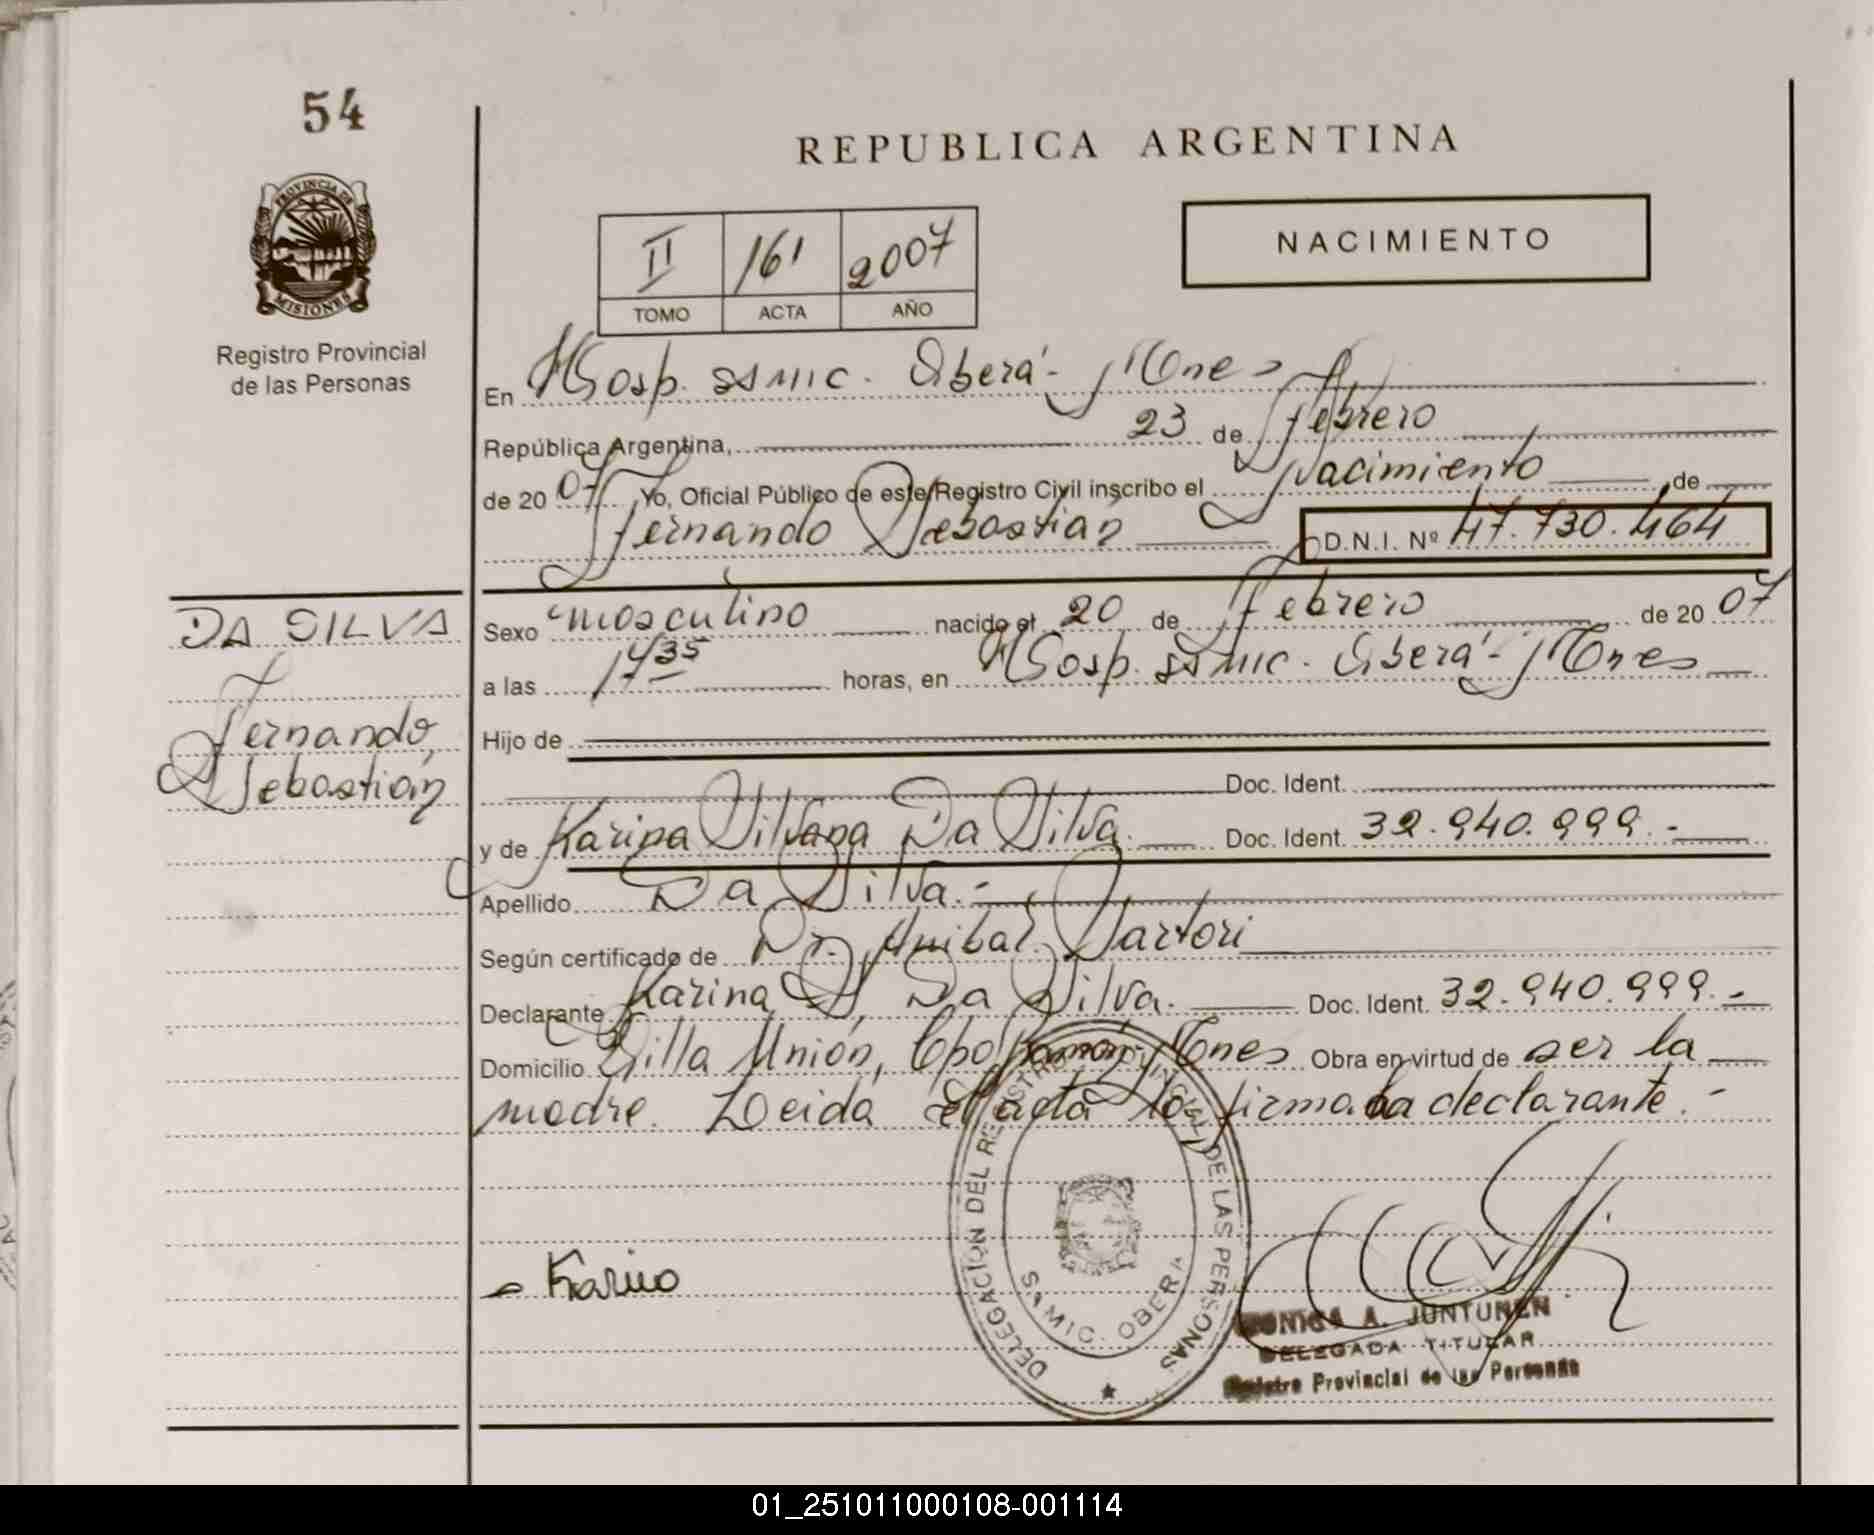 54
PROVINCIA DE
MISIONES
Registro Provincial
de las Personas
REPUBLICA ARGENTINA
II 161 2007
TOMO ACTA AÑO
NACIMIENTO
En Hosp. SAMIC. Oberá - Mnes
República Argentina, 23 de febrero
de 2007 Yo, Oficial Público de este Registro Civil inscribo el Nacimiento de
Fernando Sebastián D.N.I. Nº 47.730.464
DA SILVA
Fernando,
Sebastián
Sexo masculino nacido el 20 de febrero de 2007
a las 17 35 horas, en Hosp. SAMIC. Oberá - Mnes
Hijo de
Doc. Ident.
y de Karina Silvana Da Silva. Doc. Ident. 32.940.999.-
Apellido Da Silva.-
Según certificado de Dr. Anibal Sartori
Declarante Karina S. Da Silva. Doc. Ident. 32.940.999.-
Domicilio Villa Unión, Cpo Ramón, Mnes Obra en virtud de ser la
madre. Leída el acta la firma la declarante.-
- Karina
DELEGACIÓN DEL REGISTRO PROVINCIAL DE LAS PERSONAS
SAMIC. OBERA
MONICA A. JUNTUNEN
DELEGADA TITULAR
Registro Provincial de las Personas
01_251011000108-001114